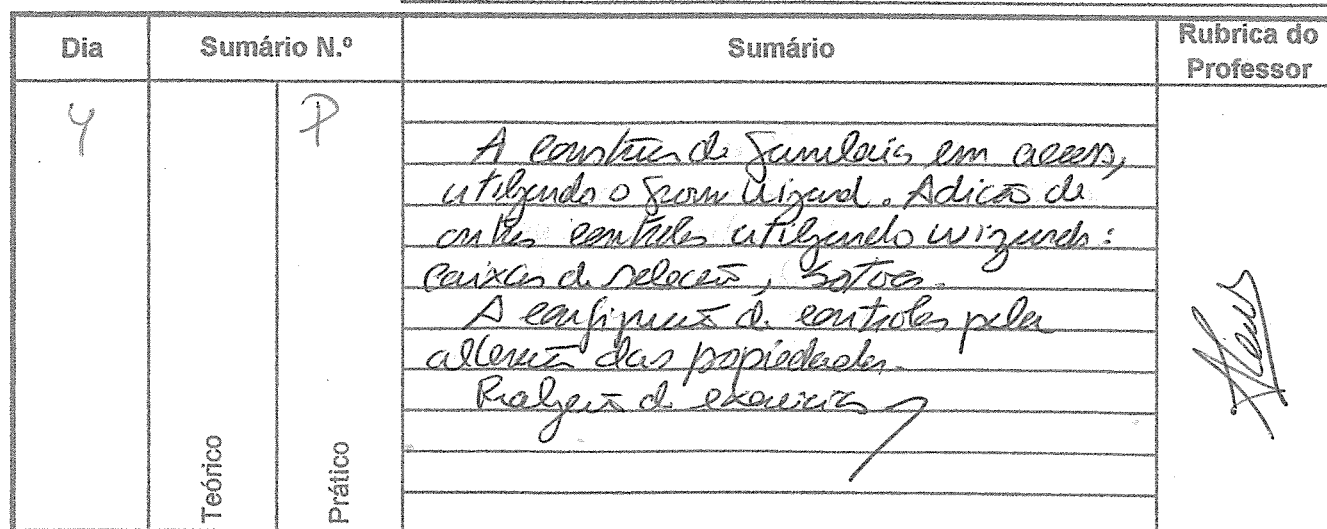 Dia Sumário N.º Sumário Rubrica do Professor
4 P
A construção de formulários em access,
utilizando o form wizard. Adição de
outros controles utilizando wizards:
caixas de seleção, botões.
A configuração de controles pela
alteração das propiedades.
Realização de exercícios
Teórico
Prático